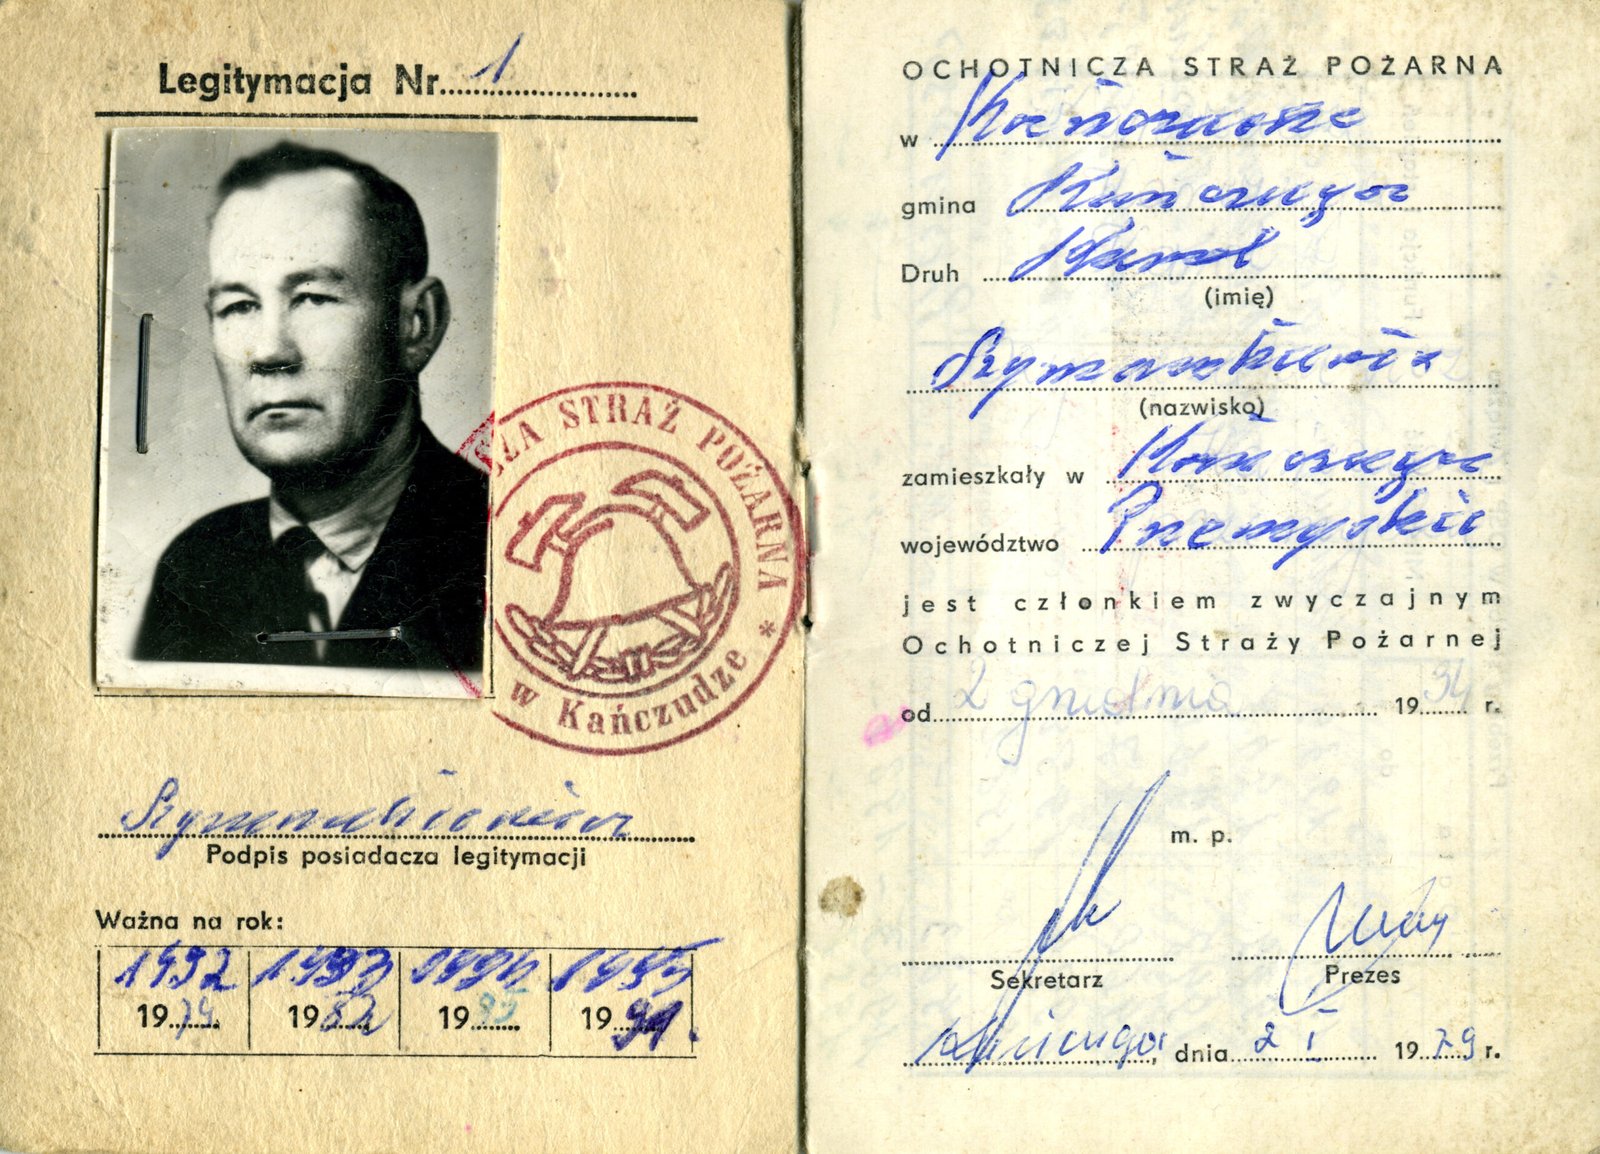 Legitymacja Nr. 1
SZA STRAŻ POŻARNA *
w Kańczudze
Podpis posiadacza legitymacji
Ważna na rok:
1992 1993 1994 1995
1979 1982 1995 1991.
OCHOTNICZA STRAŻ POŻARNA
w
gmina Kańczuga
Druh Karol
(imię)
Szymankiewicz
(nazwisko)
zamieszkały w Kańczuga
województwo Przemyskie
jest członkiem zwyczajnym
Ochotniczej Straży Pożarnej
od 2 grudnia 1934 r.
m. p.
Sekretarz Prezes
Kańczuga, dnia 2 I 1979 r.